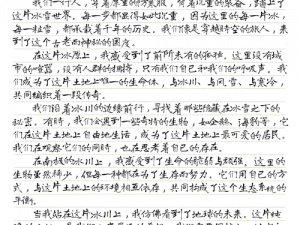 我们一行人，穿着厚重的防寒服，背着沉重的装备，踏上了
这片冰雪世界。每一步都显得如此沉重，因为这里的每一片冰，
每一粒雪，都承载着千年的历史。我们就是穿越时空的旅人，来
到了这个古老而神秘的国度。
在这片冰原上，我感受到了前所未有的孤独。这里没有城
市的喧嚣，没有人群的拥挤，只有我们自己和我们的呼吸声。我
们成为了这片土地上唯一的生命体，与冰川、与风雪、与寒冷，
共同编织着一段传奇。
我们沿着冰川的边缘前行，寻找着那些隐藏在冰雪之下的
秘密。有时，我们会遇到一些奇特的生物，如企鹅、海豹等，它
们在这片土地上自由地生活，成为了这片土地上最可爱的居民。
我们在观察它们的同时，也在思考着自己的存在。
在南极的冰川上，我感受到了生命的脆弱与顽强。这里的
生物虽然稀少，但每一种都在为了生存而努力。它们用自己的方
式，与这片土地上的环境相互依存，共同构成了这个生态系统的
平衡。
当我站在这片冰川上，我仿佛看到了地球的未来。这片